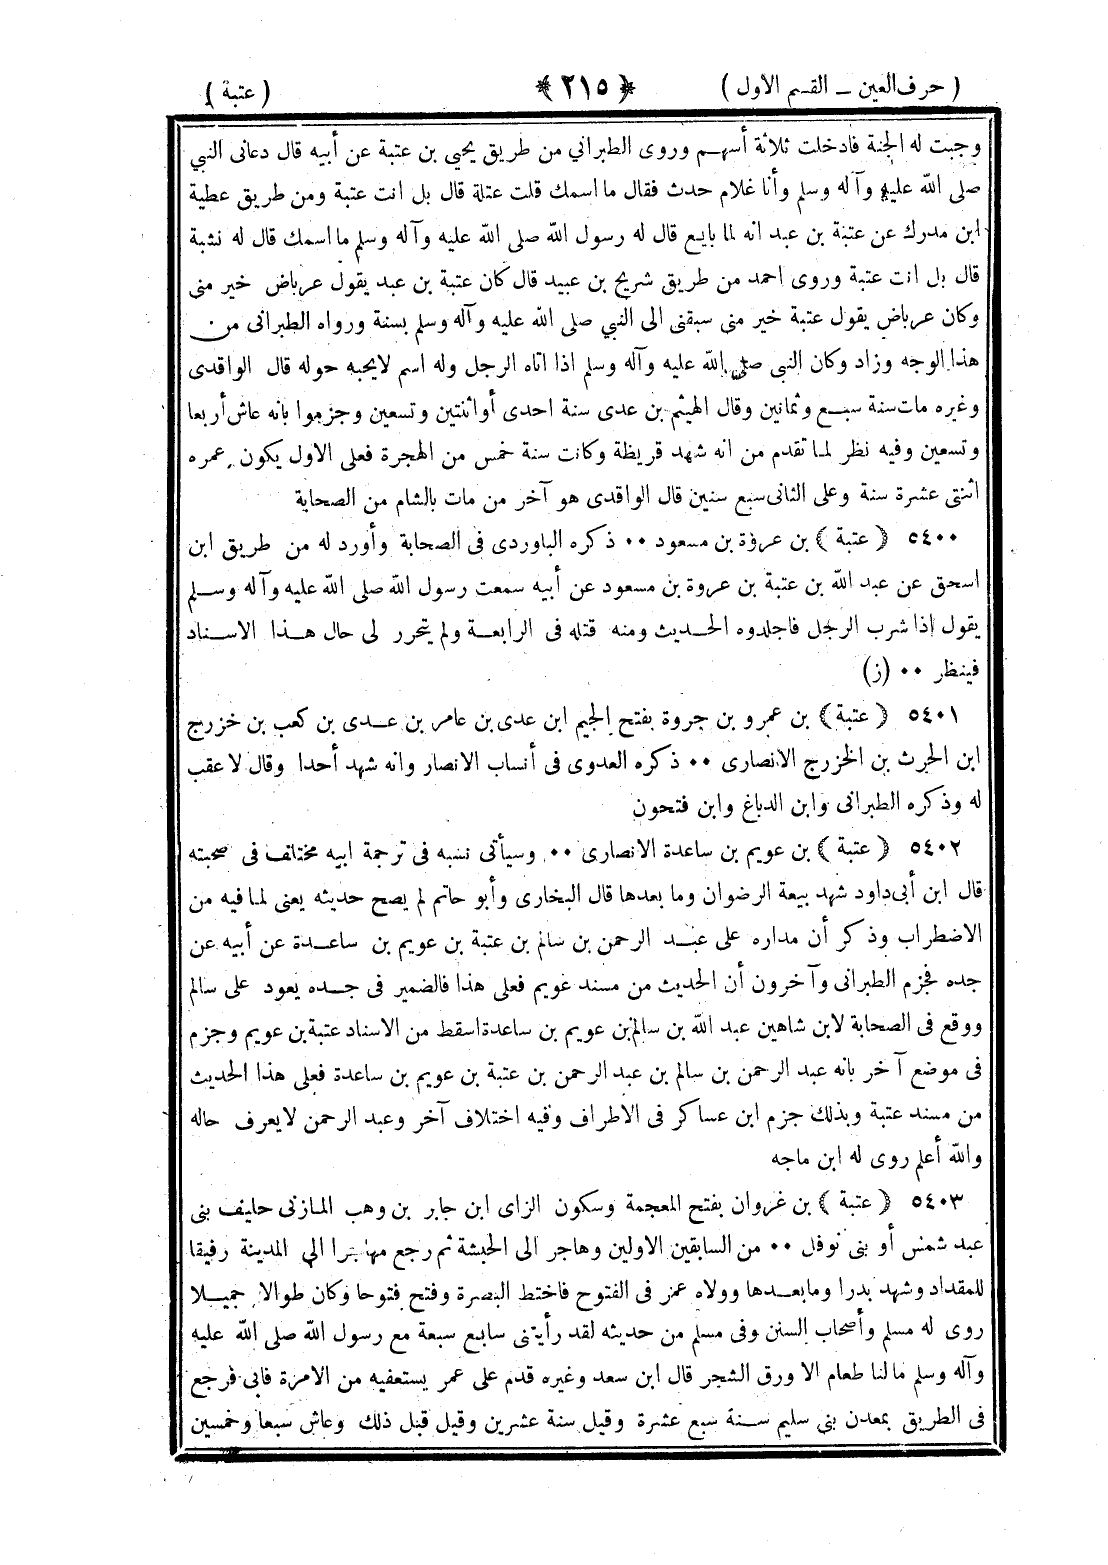 ( حرف العين – القسم الاول )
﴿ ٢١٥ ﴾
( عتبة )
وجبت له الجنة فادخلت ثلاثة أسهم وروى الطبراني من طريق يحيي بن عتبة عن أبيه قال دعانى النبي
صلى الله عليه وآله وسلم وأنا غلام حدث فقال ما اسمك قلت عتلة قال بل انت عتبة ومن طريق عطية
ابن مدرك عن عتبة بن عبد انه لما بايع قال له رسول الله صلى الله عليه وآله وسلم ما اسمك قال له نشبة
قال بل انت عتبة وروى احمد من طريق شريح بن عبيد قال كان عتبة بن عبد يقول عرباض خير منى
وكان عرباض يقول عتبة خير منى سبقنى الى النبي صلى الله عليه وآله وسلم بسنة ورواه الطبرانى من
هذا الوجه وزاد وكان النبي صلى الله عليه وآله وسلم اذا اتاه الرجل وله اسم لايحبه حوله قال الواقدى
وغيره مات سنة سبع وثمانين وقال الهيثم بن عدى سنة احدى أواثنتين وتسعين وجزموا بانه عاش أربعا
وتسعين وفيه نظر لما تقدم من انه شهد قريظة وكانت سنة خمس من الهجرة فعلى الاول يكون عمره
اثنتى عشرة سنة وعلى الثانى سبع سنين قال الواقدى هو آخر من مات بالشام من الصحابة
٥٤٠٠ ﴿ عتبة ﴾ بن عروة بن مسعود ٠٠ ذكره الباوردى فى الصحابة وأورد له من طريق ابن
اسحق عن عبد الله بن عتبة بن عروة بن مسعود عن أبيه سمعت رسول الله صلى الله عليه وآله وسلم
يقول إذا شرب الرجل فاجلدوه الحديث ومنه قتله فى الرابعة ولم يتحرر لى حال هذا الاسناد
فينظر ٠٠ (ز)
٥٤٠١ ﴿ عتبة ﴾ بن عمرو بن جروة بفتح الجيم ابن عدى بن عامر بن عدى بن كعب بن خزرج
ابن الحرث بن الخزرج الانصارى ٠٠ ذكره العدوى فى أنساب الانصار وانه شهد أحدا وقال لا عقب
له وذكره الطبرانى وابن الدباغ وابن فتحون
٥٤٠٢ ﴿ عتبة ﴾ بن عويم بن ساعدة الانصارى ٠٠ وسيأتى نسبه فى ترجمة ابيه مختلف فى صحبته
قال ابن أبى داود شهد بيعة الرضوان وما بعدها قال البخارى وأبو حاتم لم يصح حديثه يعنى لما فيه من
الاضطراب وذكر أن مداره على عبد الرحمن بن سالم بن عتبة بن عويم بن ساعدة عن أبيه عن
جده فجزم الطبرانى وآخرون أن الحديث من مسند عويم فعلى هذا فالضمير فى جده يعود على سالم
ووقع فى الصحابة لابن شاهين عبد الله بن سالم بن عويم بن ساعدة اسقط من الاسناد عتبة بن عويم وجزم
فى موضع آخر بانه عبد الرحمن بن سالم بن عبد الرحمن بن عتبة بن عويم بن ساعدة فعلى هذا الحديث
من مسند عتبة وبذلك جزم ابن عساكر فى الاطراف وفيه اختلاف آخر وعبد الرحمن لايعرف حاله
والله أعلم روى له ابن ماجه
٥٤٠٣ ﴿ عتبة ﴾ بن غزوان بفتح المعجمة وسكون الزاى ابن جابر بن وهب المازنى حليف بنى
عبد شمس أو بنى نوفل ٠٠ من السابقين الاولين وهاجر الى الحبشة ثم رجع مهاجرا الى المدينة رفيقا
للمقداد وشهد بدرا وما بعدها وولاه عمر فى الفتوح فاختط البصرة وفتح فتوحا وكان طوالا جميلا
روى له مسلم وأصحاب السنن وفى مسلم من حديثه لقد رأيتنى سابع سبعة مع رسول الله صلى الله عليه
وآله وسلم ما لنا طعام الا ورق الشجر قال ابن سعد وغيره قدم على عمر يستعفيه من الامرة فابى فرجع
فى الطريق بمعدن بنى سليم سنة سبع عشرة وقيل سنة عشرين وقيل قبل ذلك وعاش سبعا وخمسين